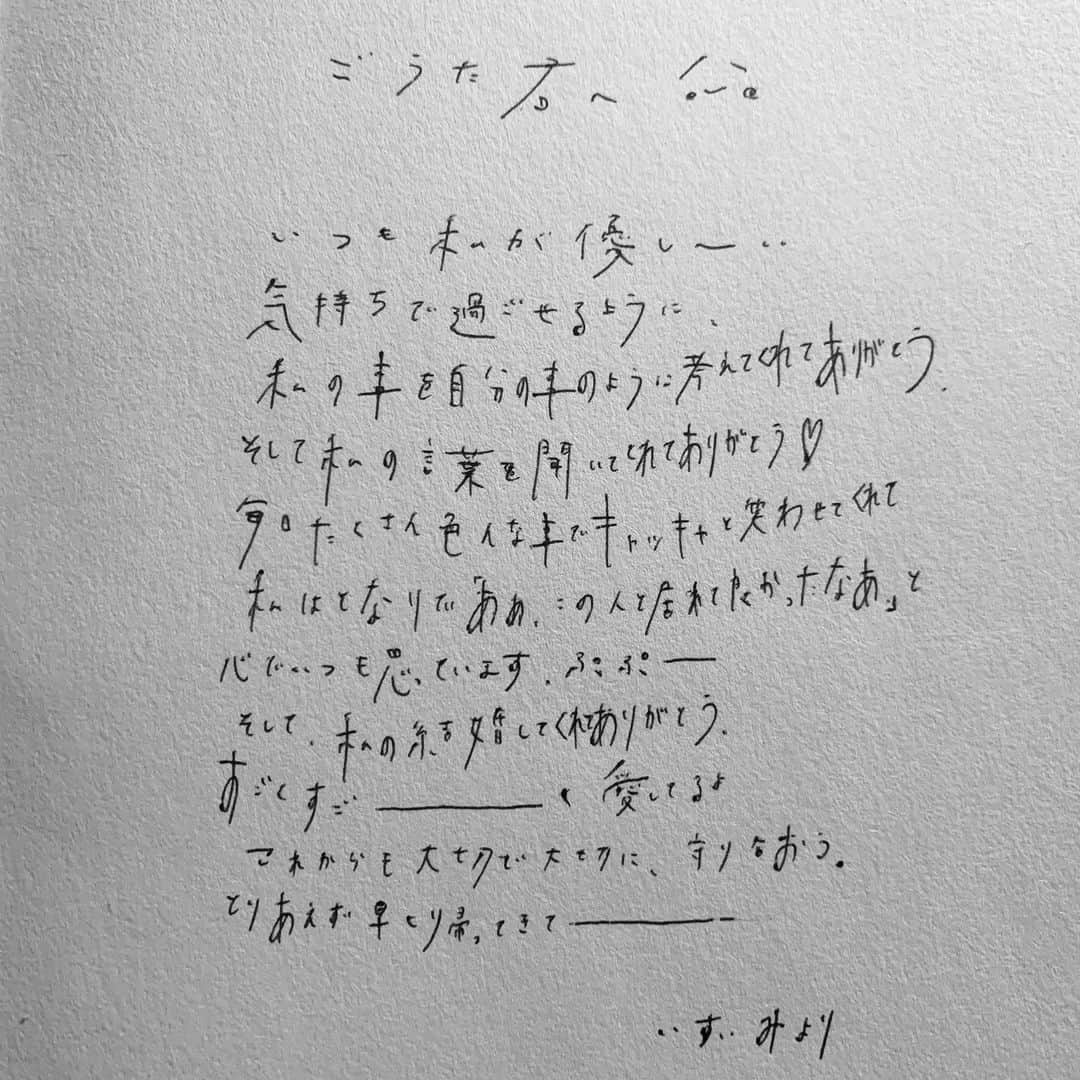 ごうた君へ
いつも私が優しーい
気持ちで過ごせるように、
私の事を自分の事のように考えてくれてありがとう.
そして私の言葉を聞いてくれてありがとう♡
毎日たくさん色んな事でキャッキャと笑わせてくれて
私はとなりで「ああ、この人と居れて良かったなあ」と
心でいつも思っています. ぷぷぷー
そして、私の結婚してくれてありがとう.
すごくすご────く 愛してるよ
これからも大切で大切に、守りあおう。
とりあえず早くり帰ってきて────
より